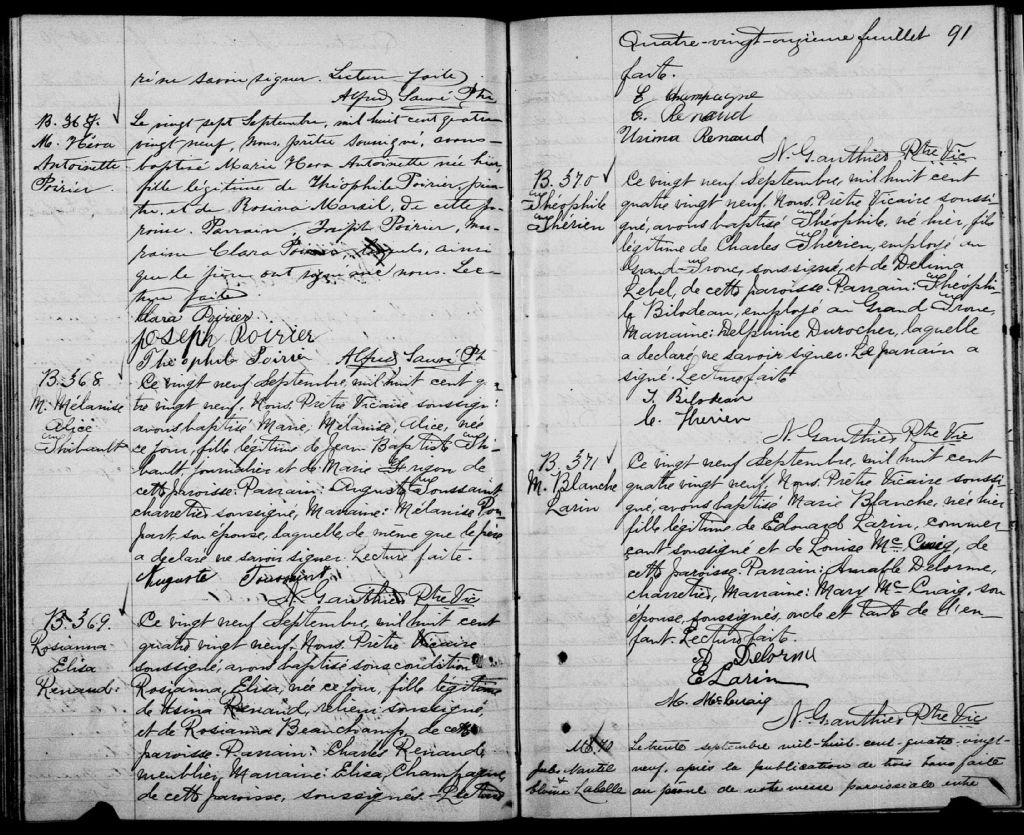 ré ne savoir signer. Lecture faite.
Alfred Sauvé Ptre
B. 367.
M. Néva
Antoinette
Poirier.
Le vingt sept Septembre, mil huit cent quatre
vingt neuf, Nous, prêtre soussigné, avons
baptisé Marie Neva Antoinette née hier,
fille légitime de Théophile Poirier,
et de Rosina Marsil, de cette pa-
roisse. Parrain, Joseph Poirier, ma-
rraine Clara Poirier ainsi
que le père ont signé avec nous. Lec-
ture faite.
Clara Poirier
Joseph Poirier
Théophile Poirier Alfred Sauvé Ptre
B. 368
M. Mélanise
Alice
Thibault
Ce vingt neuf Septembre, mil huit cent qua-
tre vingt neuf, Nous, Prêtre Vicaire soussigné
avons baptisé Marie, Mélanise, Alice, née
ce jour, fille légitime de Jean Baptiste Thi-
bault, journalier et de Marie Grigon de
cette paroisse. Parrain: Auguste Toussaint
charretier soussigné, Marraine: Mélanise Pom-
part, son épouse, laquelle de même que le père
a déclaré ne savoir signer. Lecture faite
Auguste Toussaint
N. Gauthier Ptre Vic
B. 369.
Rosianna
Elisa
Renaud:
Ce vingt neuf Septembre, mil huit cent
quatre vingt neuf, Nous, Prêtre Vicaire
soussigné avons baptisé sous condition
Rosianna, Elisa, née ce jour, fille légitime
de Usina Renaud, relieur soussigné,
et de Rosianna Beauchamp, de cette
paroisse. Parrain: Charles Renaud
meublier, Marraine: Elisa, Champagne,
de cette paroisse, soussignés. Lecture
Quatre-vingt-onzième feuillet 91
faite.
E. Champagne
C. Renaud
Usina Renaud
N. Gauthier Ptre Vic
B. 370
Théophile
Thérien
Ce vingt neuf Septembre, mil huit cent
quatre vingt neuf, Nous, Prêtre Vicaire soussi-
gné, avons baptisé Théophile, né hier, fils
légitime de Charles Thérien, employé au
Grand-Tronc, soussigné, et de Delima
Lebel, de cette paroisse. Parrain: Théophi-
le Bilodeau, employé au Grand Tronc,
Marraine: Delphine Durocher, laquelle
a déclaré ne savoir signer. Le parrain a
signé. Lecture faite
T. Bilodeau
C. Therien
N. Gauthier Ptre Vic
B. 371
M. Blanche
Larin
Ce vingt neuf Septembre, mil huit cent
quatre vingt neuf, Nous, Prêtre Vicaire soussi-
gné, avons baptisé Marie Blanche, née hier
fille légitime de Edouard Larin, commer-
çant soussigné et de Louise McCuaig, de
cette paroisse. Parrain: Amable Delorme,
charretier, Marraine: Mary McCuaig, son
épouse, soussignés, oncle et tante de l'en-
fant. Lecture faite.
A Delorme
E Larin
M. McCuaig
N. Gauthier Ptre Vic
M. 70
Jules Nantel
+
Labelle
Le trente septembre mil-huit-cent-quatre-vingt-
neuf, après la publication de trois bans faite
au prône de notre messe paroissiale entre